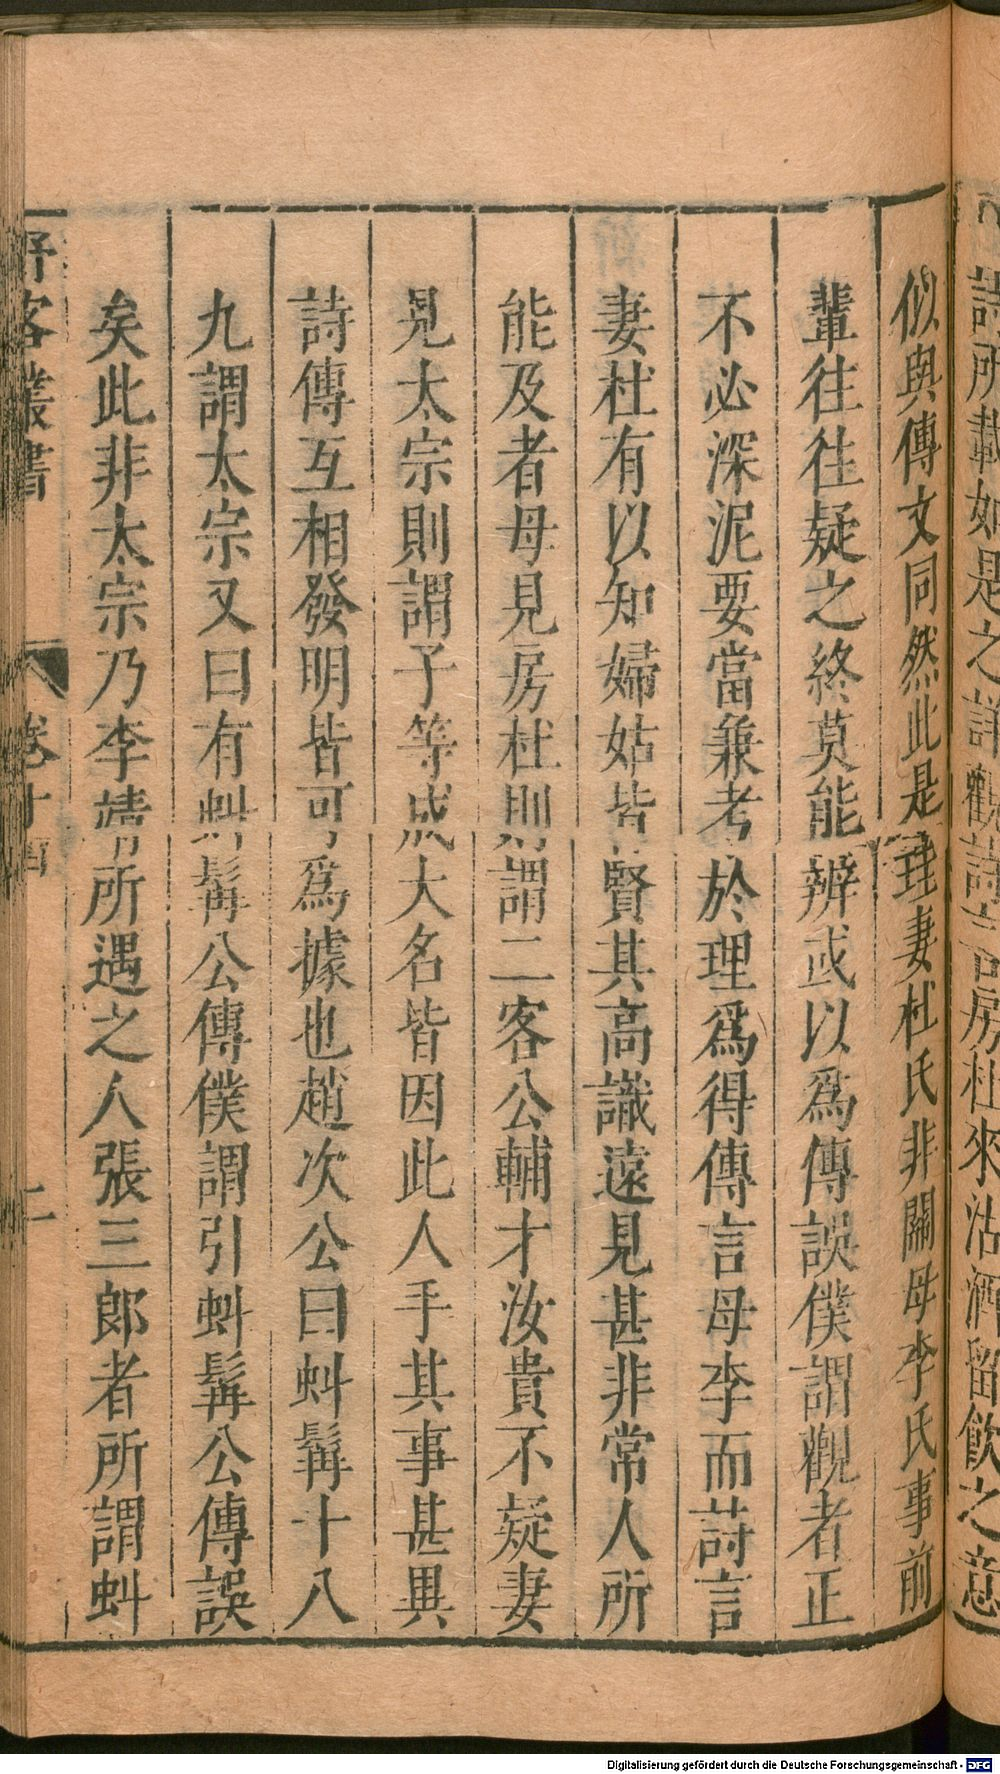 詩所載如是之詳觀詩言房杜來沽酒留飲之意
似與傳文同然此是珪妻杜氏非關母李氏事前
輩往往疑之終莫能辨或以為傳誤僕謂觀者正
不必深泥要當兼考於理為得傳言母李而詩言
妻杜有以知婦姑皆賢其高識遠見甚非常人所
能及者母見房杜則謂二客公輔才汝貴不疑妻
見太宗則謂子等成大名皆因此人手其事甚異
詩傳互相發明皆可為據也趙次公曰虯髯十八
九謂太宗又曰有虯髯公傳僕謂引虯髯公傳誤
矣此非太宗乃李靖所遇之人張三郎者所謂虯
野客叢書
卷十
Digitalisierung gefördert durch die Deutsche Forschungsgemeinschaft - DFG